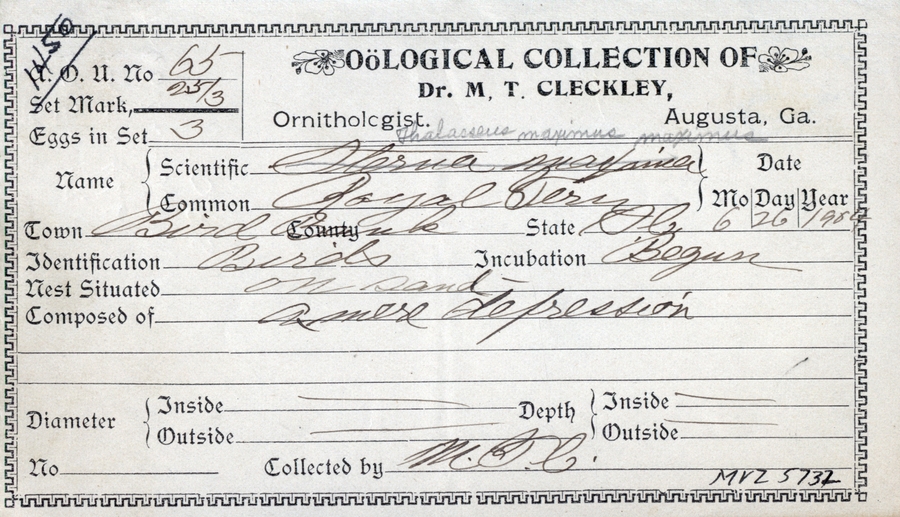 A. O. U. No 65
OöLOGICAL COLLECTION OF
Set Mark, 25/3
Dr. M. T. CLECKLEY,
Eggs in Set 3
Ornithologist. Augusta, Ga.
Thalasseus maximus maximus
Name
Scientific Sterna maxima
Common Royal Tern
Date
Mo Day Year
6 26 1904
Town Bird Bank County State Fla
Identification Birds Incubation Begun
Nest Situated on sand
Composed of a mere depression
Diameter
Inside
Outside
Depth
Inside
Outside
No Collected by M.T.C.
MVZ 5732